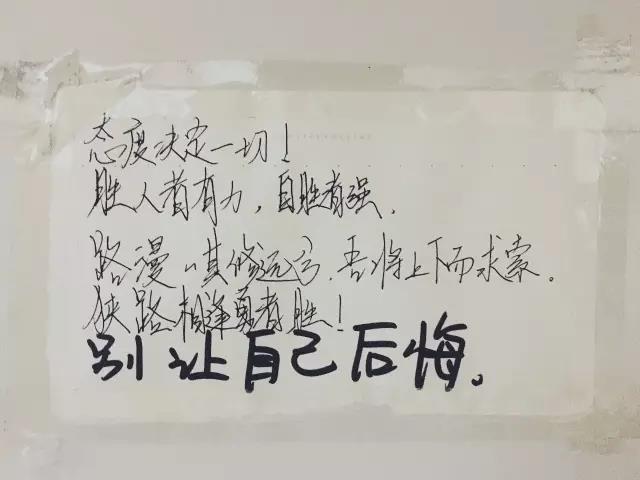 态度决定一切！
胜人者有力，自胜者强．
路漫〃其修远兮．吾将上下而求索。
狭路相逢勇者胜！
别让自己后悔。